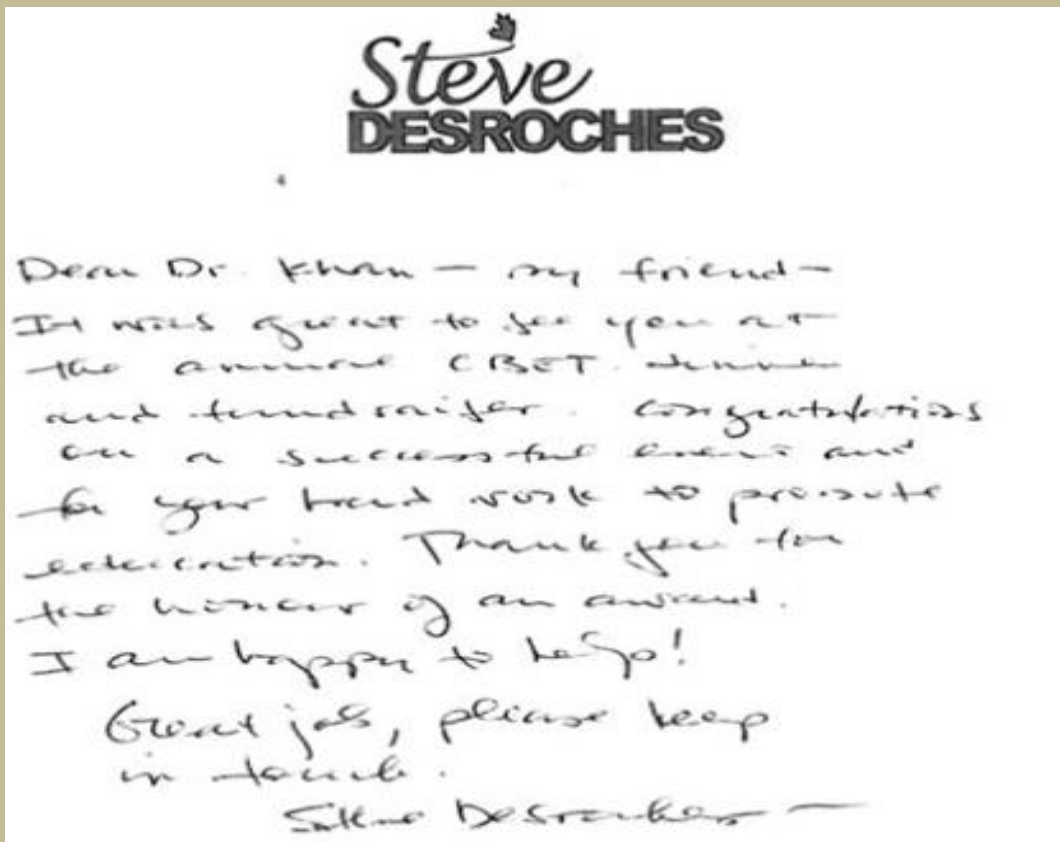 Steve
DESROCHES
Dear Dr. Khan — my friend —
It was great to see you at
the annual CBET dinner
and fundraiser. Congratulations
on a successful event and
for your hard work to promote
education. Thank you for
the honour of an award.
I am happy to help!
Great job, please keep
in touch.
Steve Desroches —